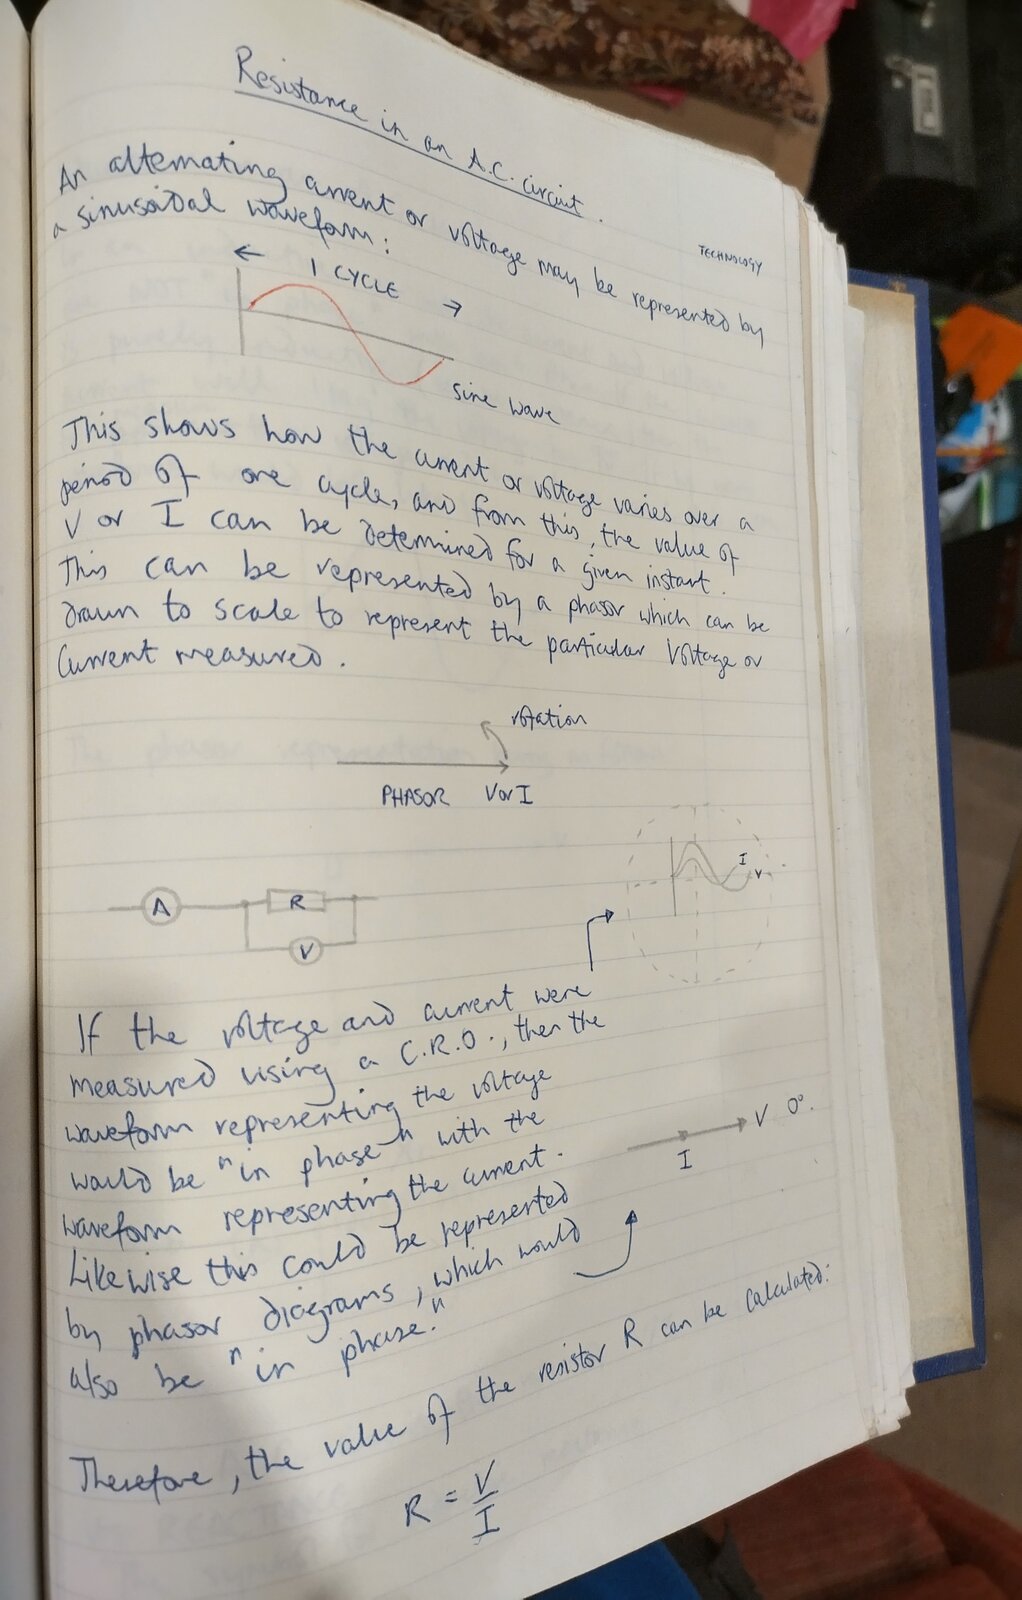 Resistance in an A.C. circuit.
TECHNOLOGY
An alternating current or voltage may be represented by
a sinusoidal waveform:
← 1 CYCLE →
sine wave
This shows how the current or voltage varies over a
period of one cycle, and from this, the value of
V or I can be determined for a given instant.
This can be represented by a phasor which can be
drawn to scale to represent the particular voltage or
current measured.
rotation
PHASOR V or I
A
R
V
I
V
If the voltage and current were
measured using a C.R.O., then the
waveform representing the voltage
would be "in phase" with the
waveform representing the current.
Likewise this could be represented
by phasor diagrams, which would
also be "in phase."
V 0°.
I
Therefore, the value of the resistor R can be calculated:
R = V/I